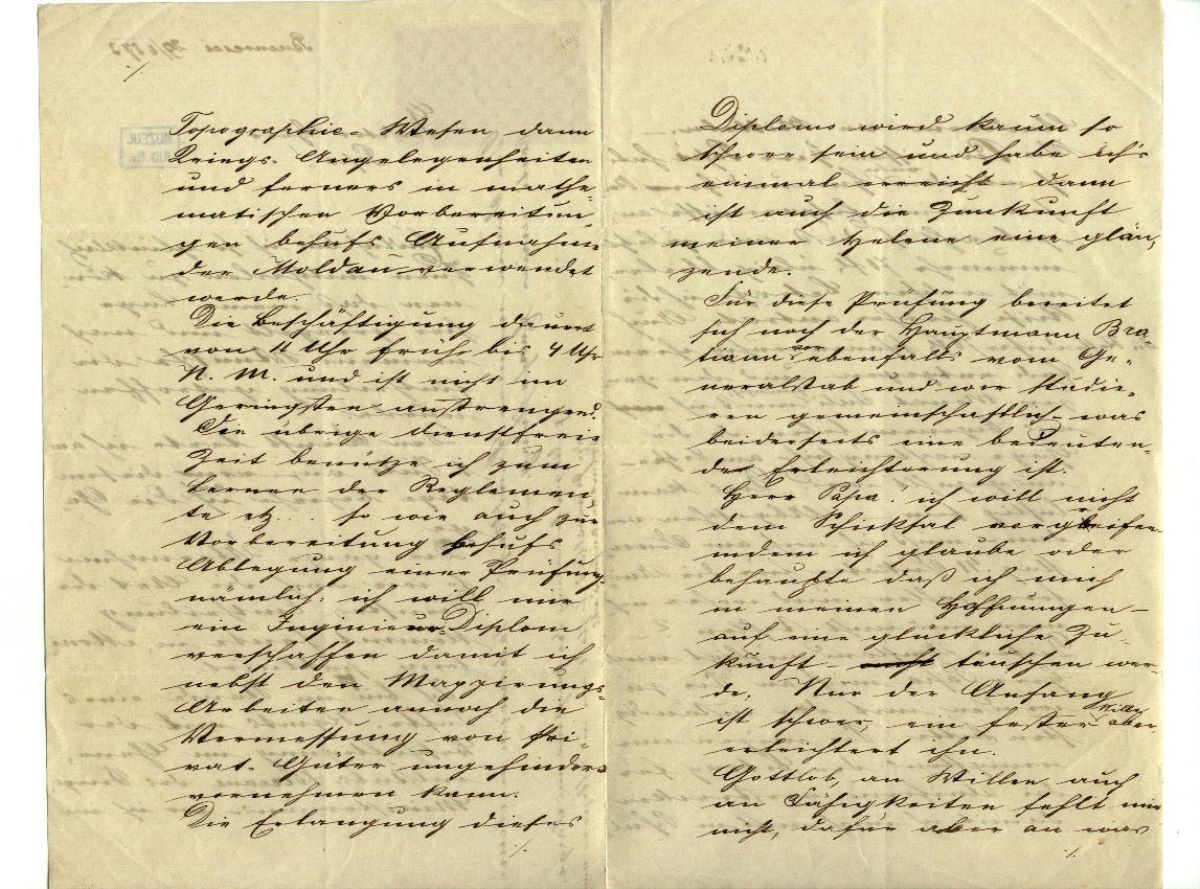 Topographie - Wesen dann
Kriegs - Angelegenheiten
und ferners in mathe-
matischen Vorbereitun-
gen behufs Aufnahme
der Moldau verwendet
werde.
Die Beschäftigung dauert
von 11 Uhr früh bis 4 Uhr
N. M. und ist nicht im
Geringsten anstrengend.
Die übrige dienstfreie
Zeit benütze ich zum
Lernen der Reglemen-
te etz... so wie auch zur
Vorbereitung behufs
Ablegung einer Prüfung
nämlich: ich will mir
ein Inginieur-Diplom
verschaffen damit ich
nebst den Mappierungs-
Arbeiten annoch die
Vermessung von Pri-
vat-Güter ungehindert
vornehmen kann.
Die Erlangung dieses
Diploms wird kaum so
schwer sein und habe ich's
einmal erreicht - dann
ist auch die Zunkunft
meiner Helene eine glän-
zende.
Für diese Prüfung bereitet
sich noch der Hauptmann Bra-
tianu vor ebenfalls vom Ge-
neralstab und wir studie-
ren gemeinschaftlich - was
beiderseits eine bedeuten-
de Erleichterung ist.
Herr Papa! ich will nicht
dem Schicksal vorgreifen
indem ich glaube oder
behaupte daß ich mich
in meinen Hoffnungen -
auf eine glückliche Zu-
kunft - nicht täuschen wer-
de. Nur der Anfang
ist schwer, ein fester Wille aber
erleichtert ihn.
Gottlob, an Willen auch
an Fähigkeiten fehlt mir
nicht, dafür aber an was